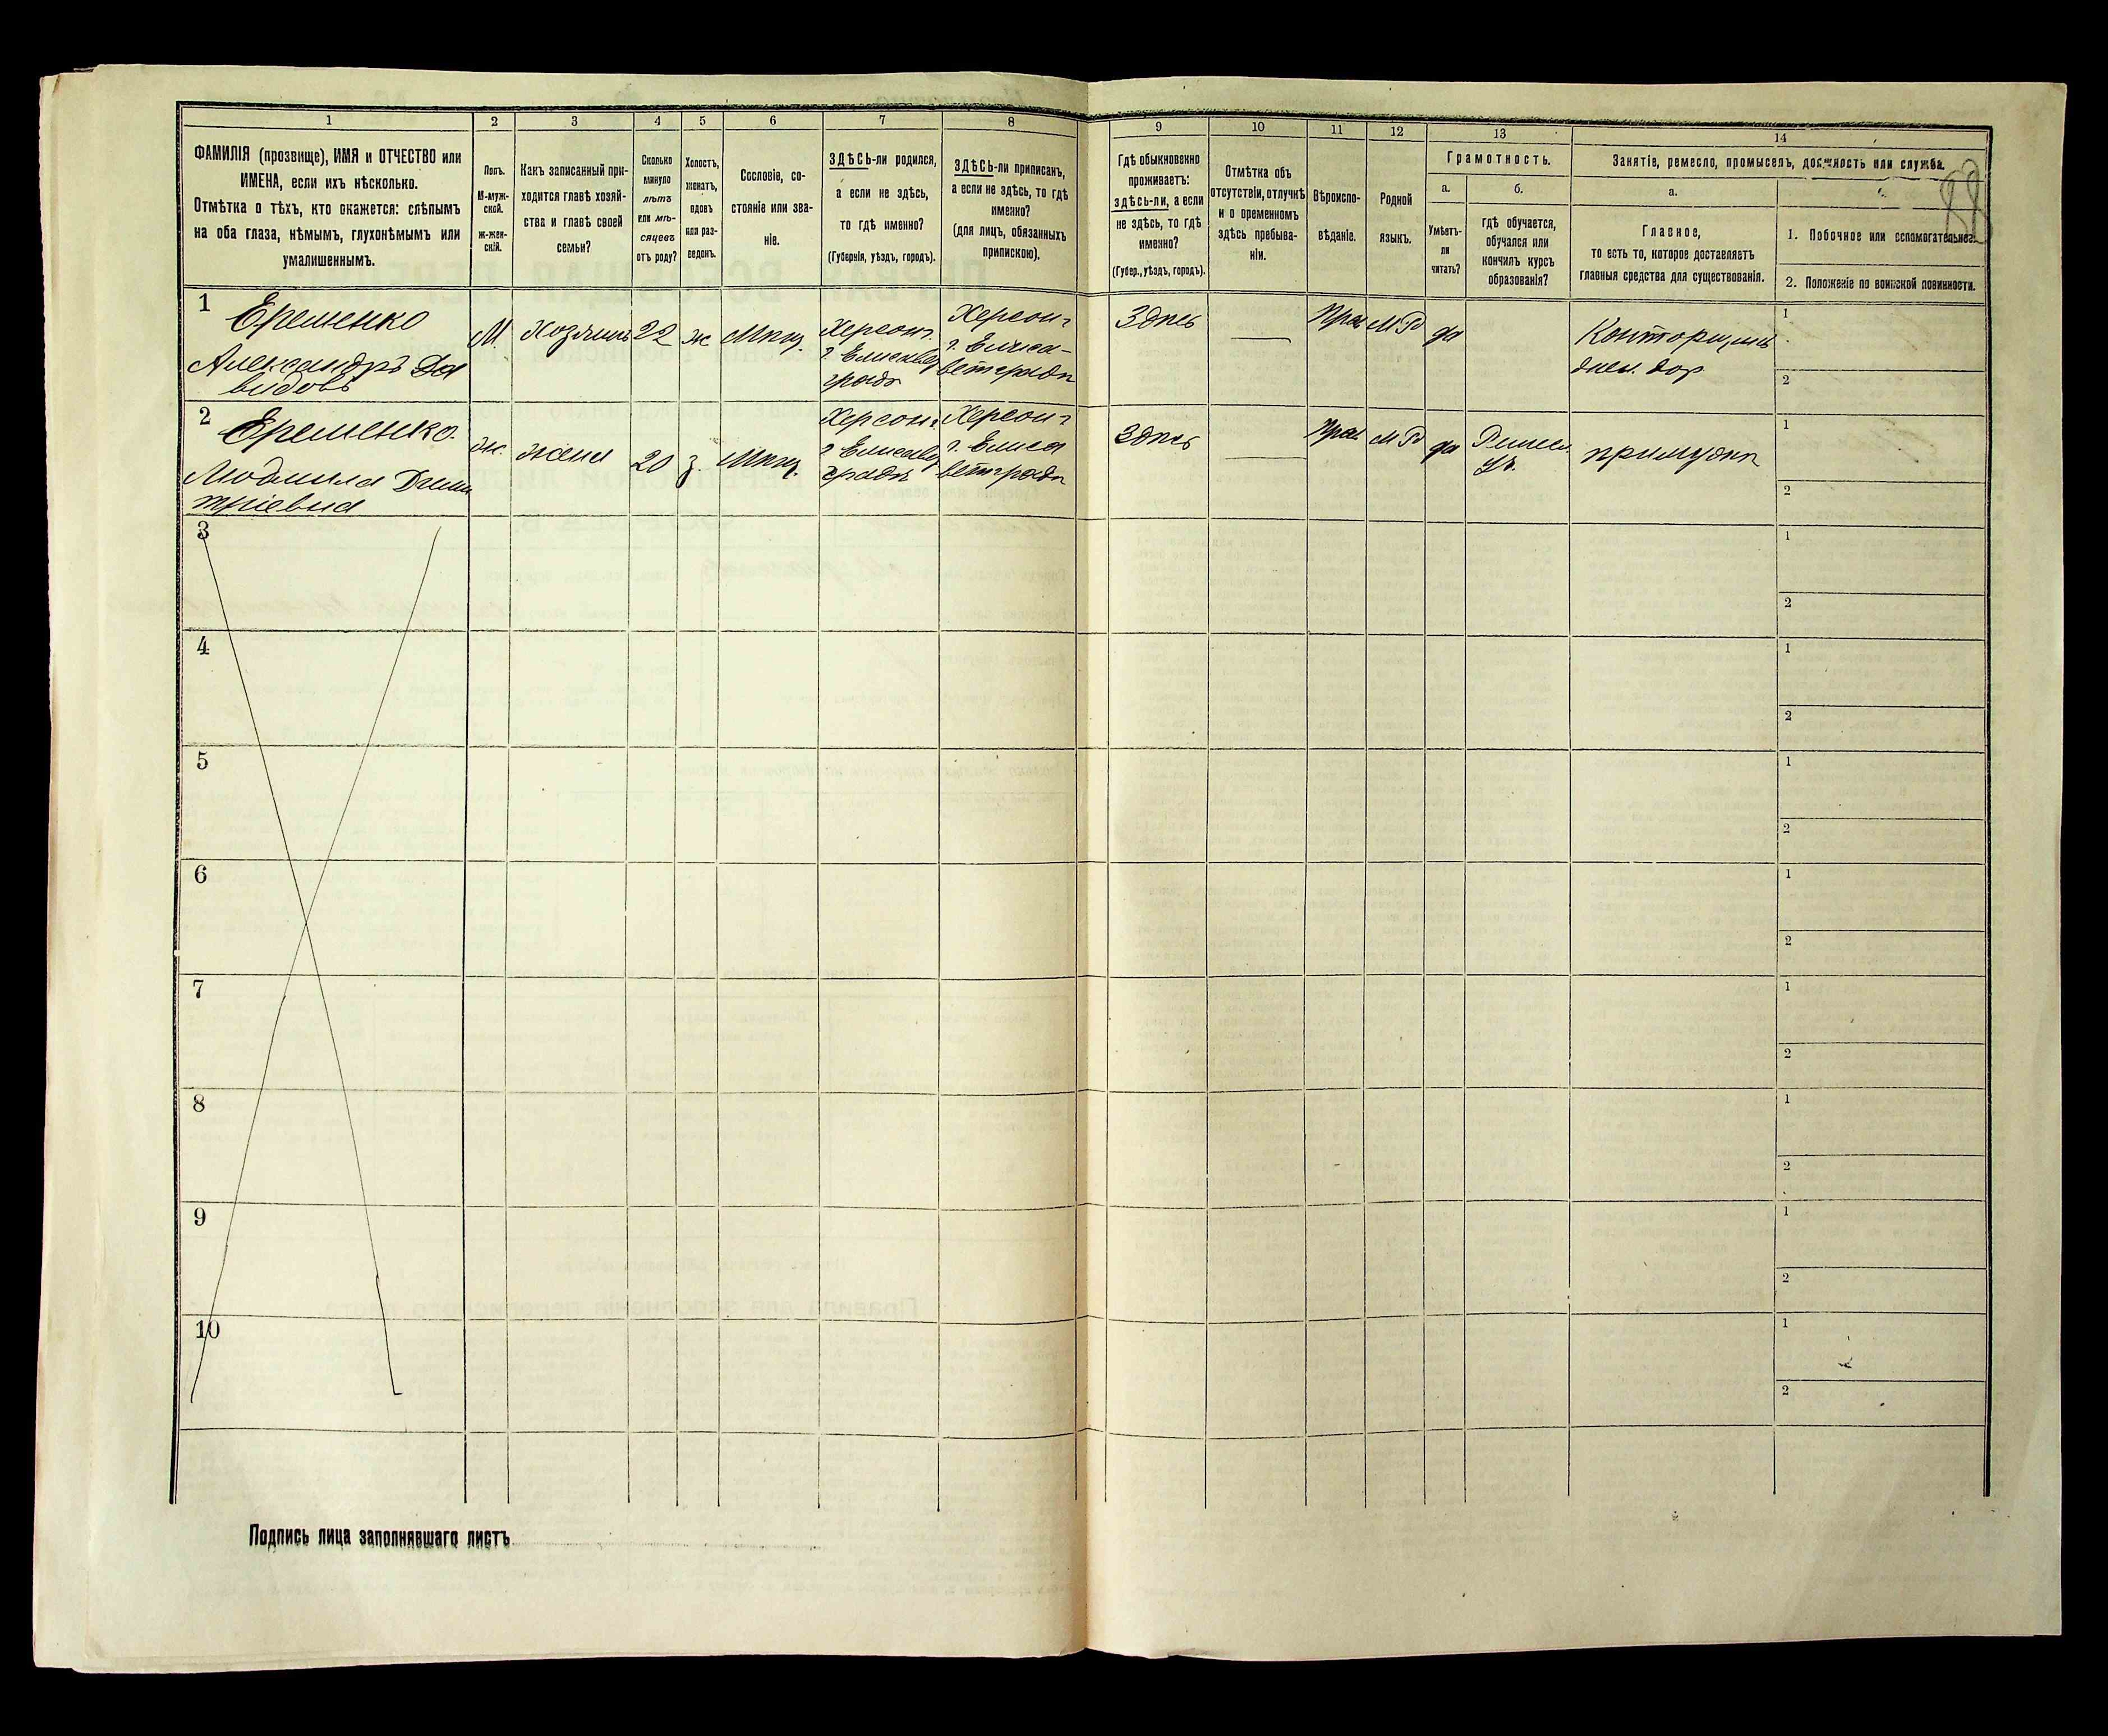 1 2 3 4 5 6 7 8 9 10 11 12 13 14
ФАМИЛІЯ (прозвище), ИМЯ и ОТЧЕСТВО или
ИМЕНА, если ихъ нѣсколько.
Отмѣтка о тѣхъ, кто окажется: слѣпымъ
на оба глаза, нѣмымъ, глухонѣмымъ или
умалишеннымъ.
Полъ.
М-муж-
ской.
ж-жен-
скій.
Какъ записанный при-
ходится главѣ хозяй-
ства и главѣ своей
семьи?
Сколько
минуло
лѣтъ
или мѣ-
сяцевъ
отъ роду?
Холостъ,
женатъ,
вдовъ
или раз-
веденъ.
Сословіе, со-
стояніе или зва-
ніе.
ЗДѢСЬ-ли родился,
а если не здѣсь,
то гдѣ именно?
(Губернія, уѣздъ, городъ).
ЗДѢСЬ-ли приписанъ,
а если не здѣсь, то гдѣ
именно?
(для лицъ, обязанныхъ
припискою).
Гдѣ обыкновенно
проживаетъ:
здѣсь-ли, а если
не здѣсь, то гдѣ
именно?
(Губер., уѣздъ, городъ).
Отмѣтка объ
отсутствіи, отлучкѣ
и о временномъ
здѣсь пребыва-
ніи.
Вѣроиспо-
вѣданіе.
Родной
языкъ.
Грамотность.
а.
Умѣетъ-
ли
читать?
б.
гдѣ обучается,
обучался или
кончилъ курсъ
образованія?
Занятіе, ремесло, промыселъ, должность или служба.
а.
Главное,
то есть то, которое доставляетъ
главныя средства для существованія.
1. Побочное или вспомогательное.
2. Положеніе по воинской повинности.
88
1
Еременко
Александръ Да
видовъ
М.
Хозяинъ
22
ж
Мѣщ.
Херсон.
г. Елисавет
градъ
Херсон.
г. Елиса-
ветградъ
Здѣсь
Прав
М Р
да
Конторщикъ
1
2
2
Еременко.
Людмила Дими
тріевна
ж.
жена
20
з.
Мѣщ.
Херсон.
г. Елисавет
градъ
Херсон.
г. Елиса
ветградъ
Здѣсь
Прав
М Р
да
1
2
3
1
2
4
1
2
5
1
2
6
1
2
7
1
2
8
1
2
9
1
2
10
1
2
Подпись лица заполнявшаго листъ